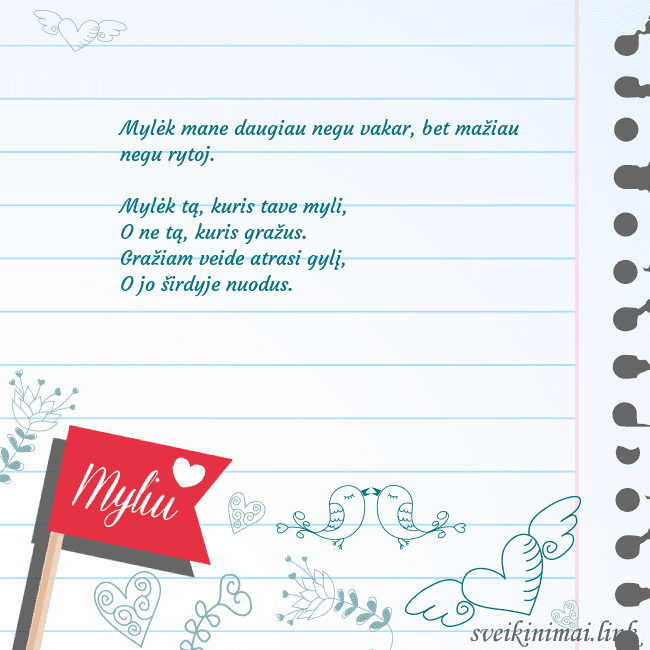 Mylėk mane daugiau negu vakar, bet mažiau
negu rytoj.
Mylėk tą, kuris tave myli,
O ne tą, kuris gražus.
Gražiam veide atrasi gylį,
O jo širdyje nuodus.
Myliu
sveikinimai.link